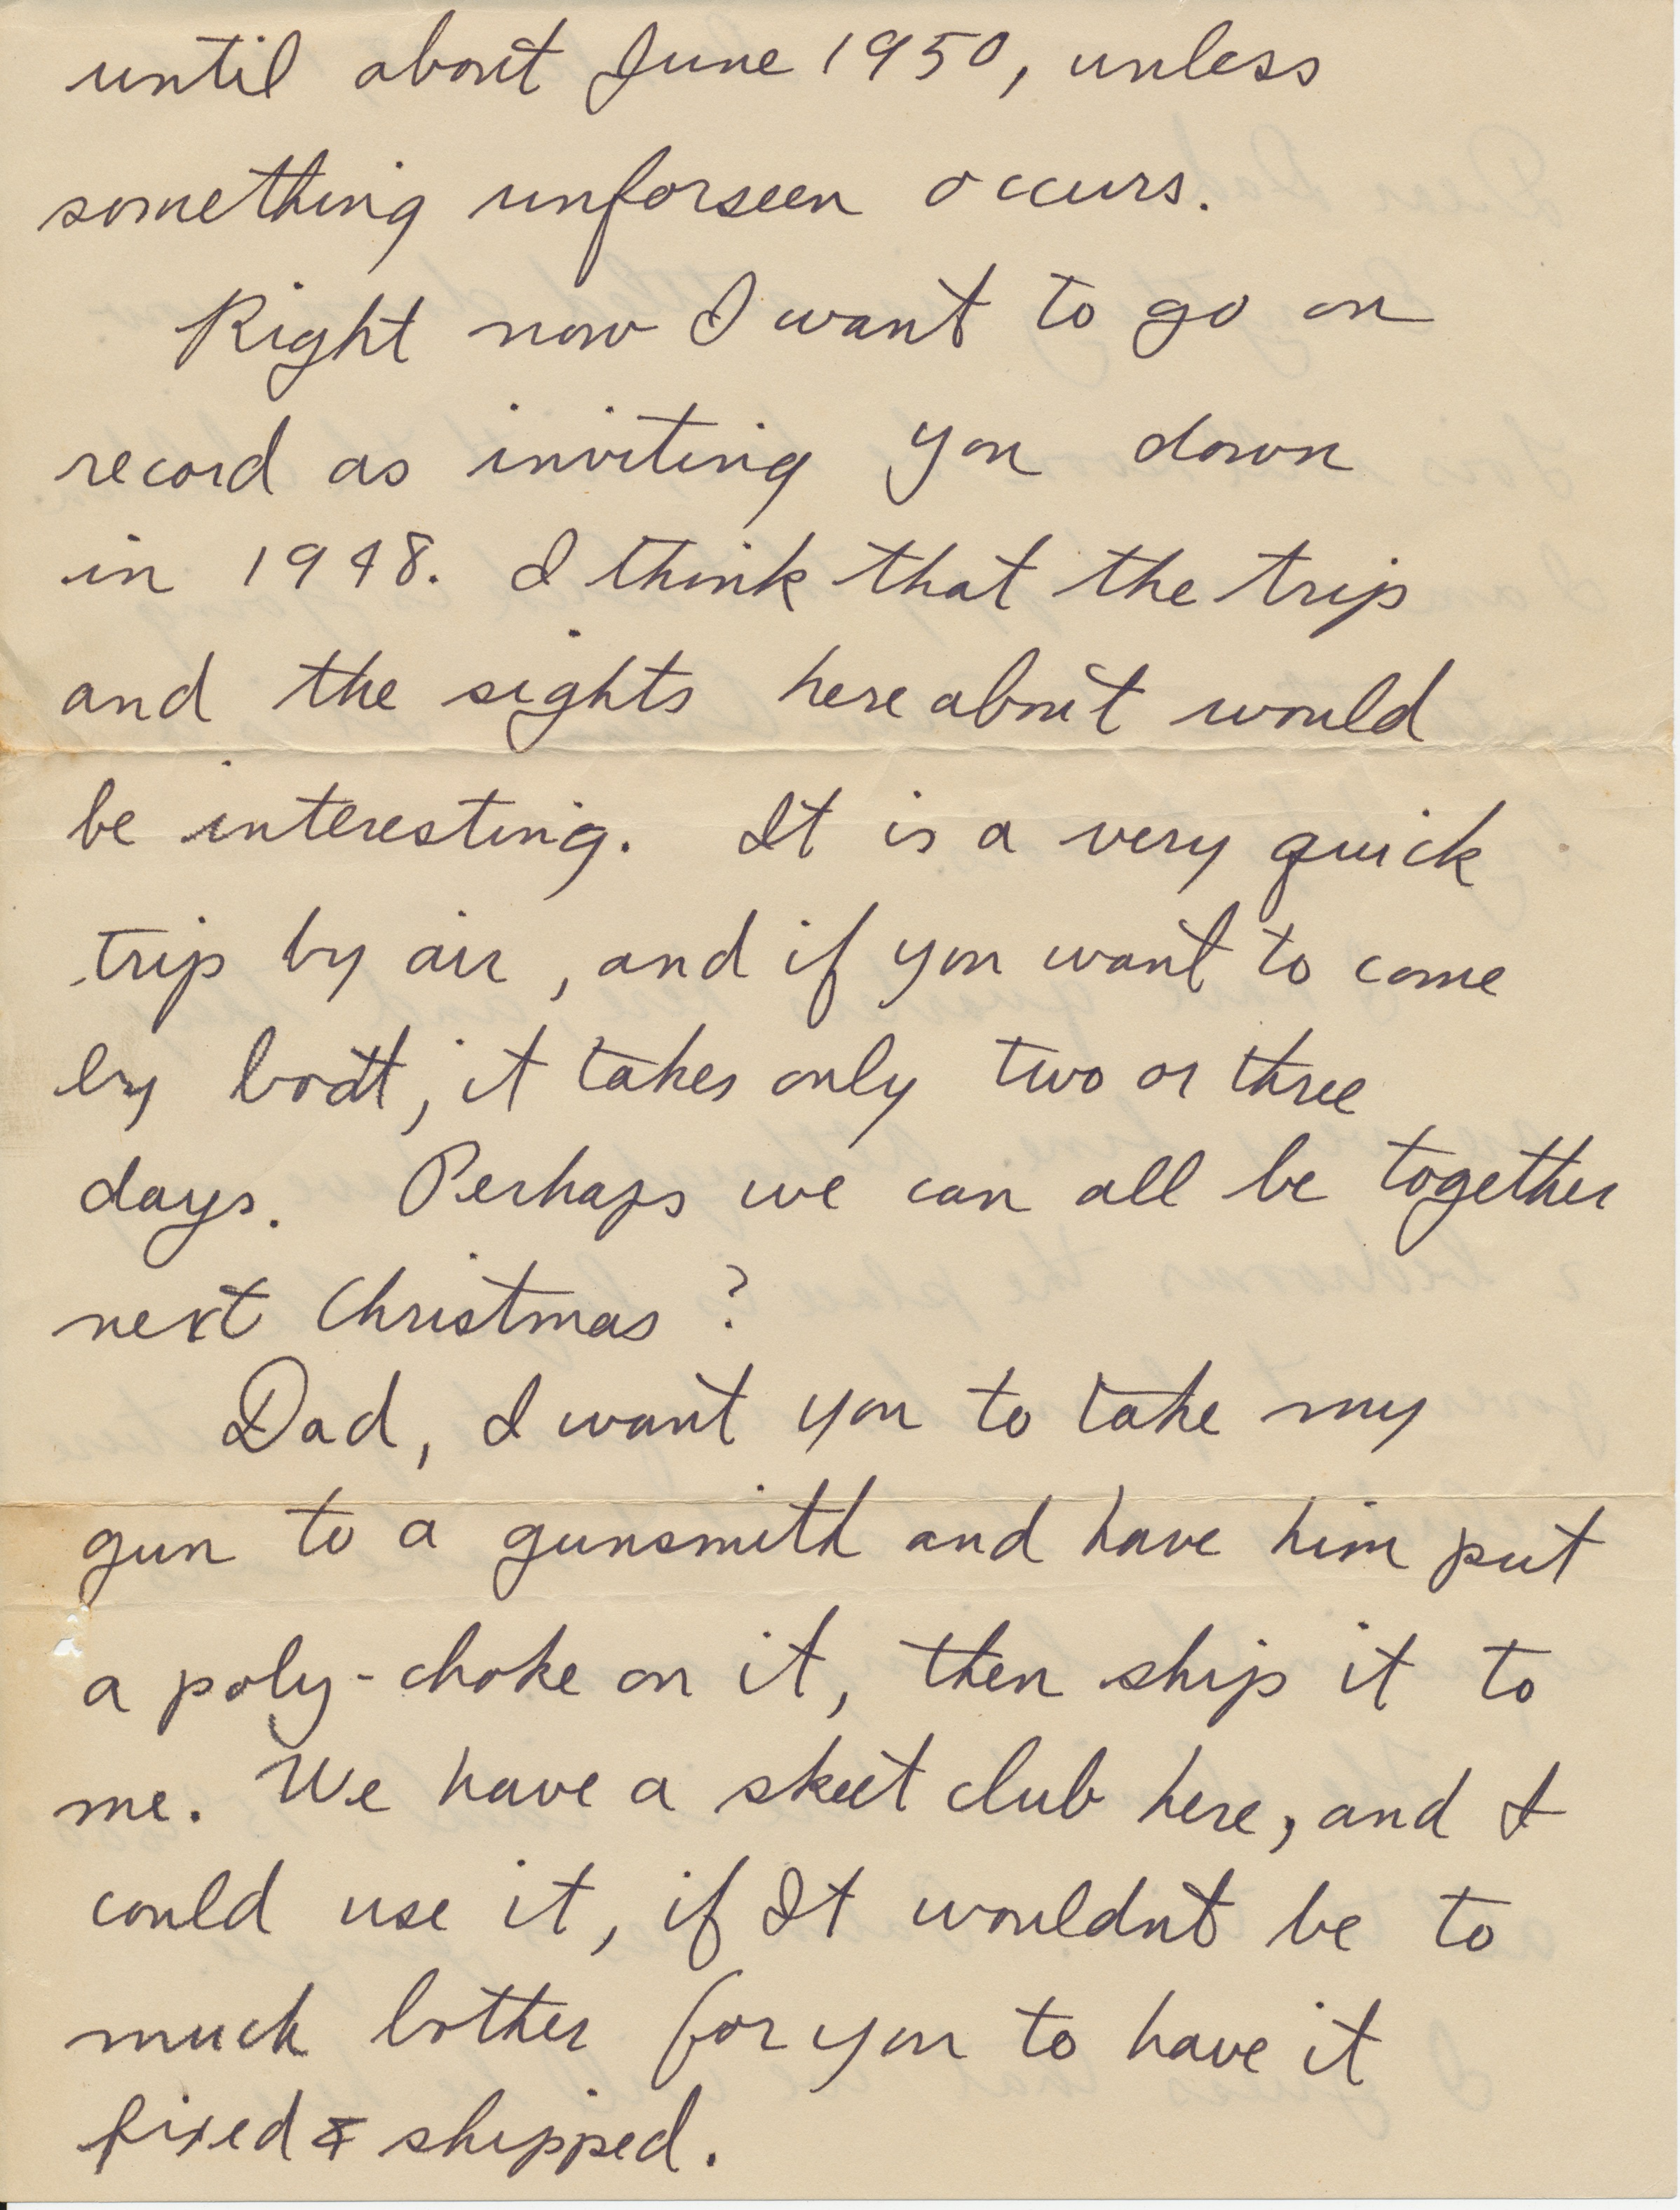 until about June 1950, unless
something unforseen occurs.
Right now I want to go on
record as inviting you down
in 1948. I think that the trip
and the sights hereabout would
be interesting. It is a very quick
trip by air, and if you want to come
by boat, it takes only two or three
days. Perhaps we can all be together
next Christmas?
Dad, I want you to take my
gun to a gunsmith and have him put
a poly-choke on it, then ship it to
me. We have a skeet club here, and I
could use it, if It wouldnt be to
much bother for you to have it
fixed & shipped.